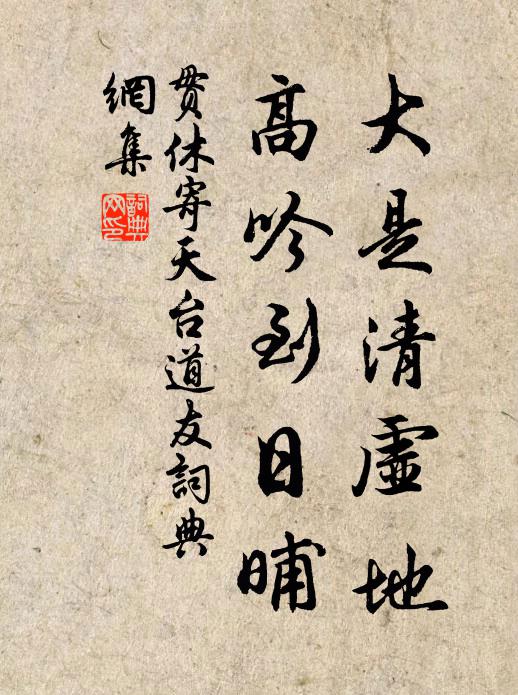 大是清虛地
高吟到日晡
貫休寄天台道友詞典
網集
詞典網印